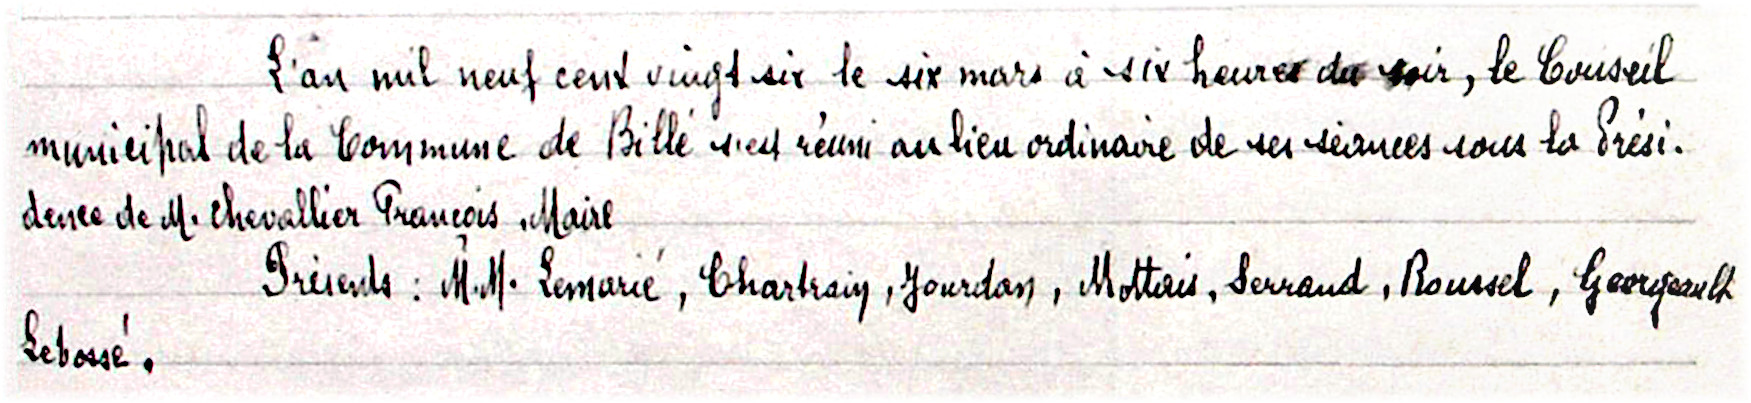 L'an mil neuf cent vingt six le six mars à six heures du soir, le Conseil
municipal de la Commune de Billé s'est réuni au lieu ordinaire de ses séances sous la Prési-
dence de M. Chevallier François, Maire
Présents : M.M. Lemarié, Chartrain, Jourdan, Mottais, Serrand, Roussel, Georgeault
Lebossé.